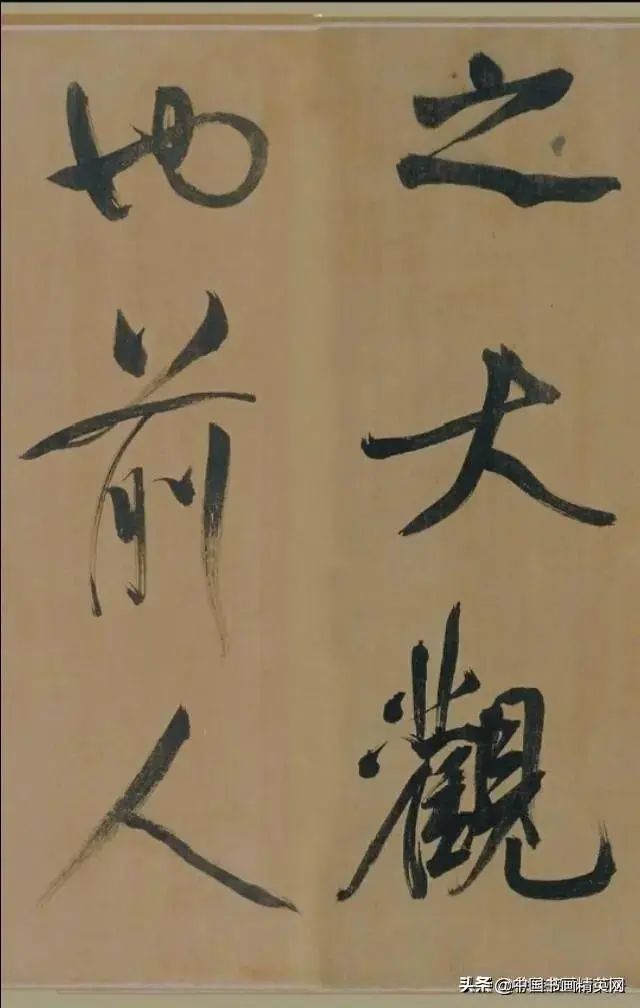 之大觀
也前人
头条@中国书画精英网